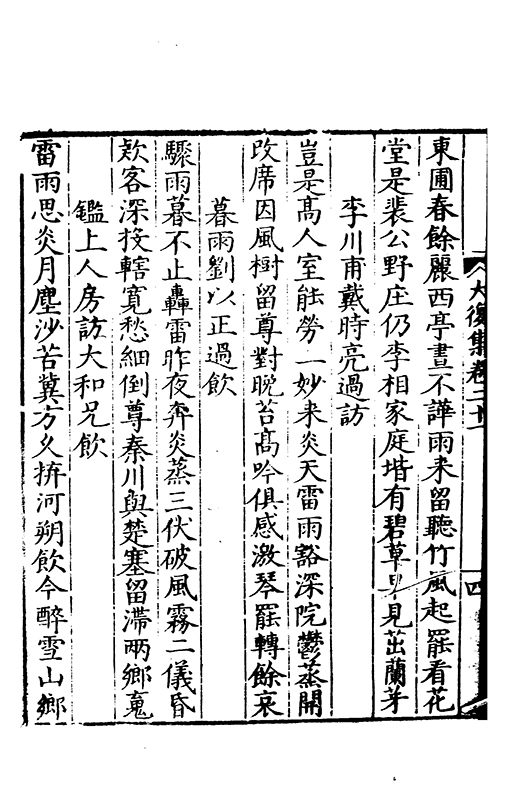 大復集卷二十
四
東圃春餘麗西亭晝不譁雨来留聽竹風起罷看花
堂是裴公野庄仍李相家庭堦有碧草早見茁蘭芽
李川甫戴時亮過訪
豈是髙人室能勞一妙来炎天雷雨豁深院鬱蒸開
改席因風樹留尊對晩苔髙吟俱感激琴罷轉餘哀
暮雨劉以正過飲
驟雨暮不止轟雷昨夜奔炎蒸三伏破風霧二儀昏
欵客深投轄寛愁細倒尊秦川與楚塞留滯兩鄉䰟
鑑上人房訪大和兄飲
雷雨思炎月塵沙苦冀方久拚河朔飲今醉雪山鄉